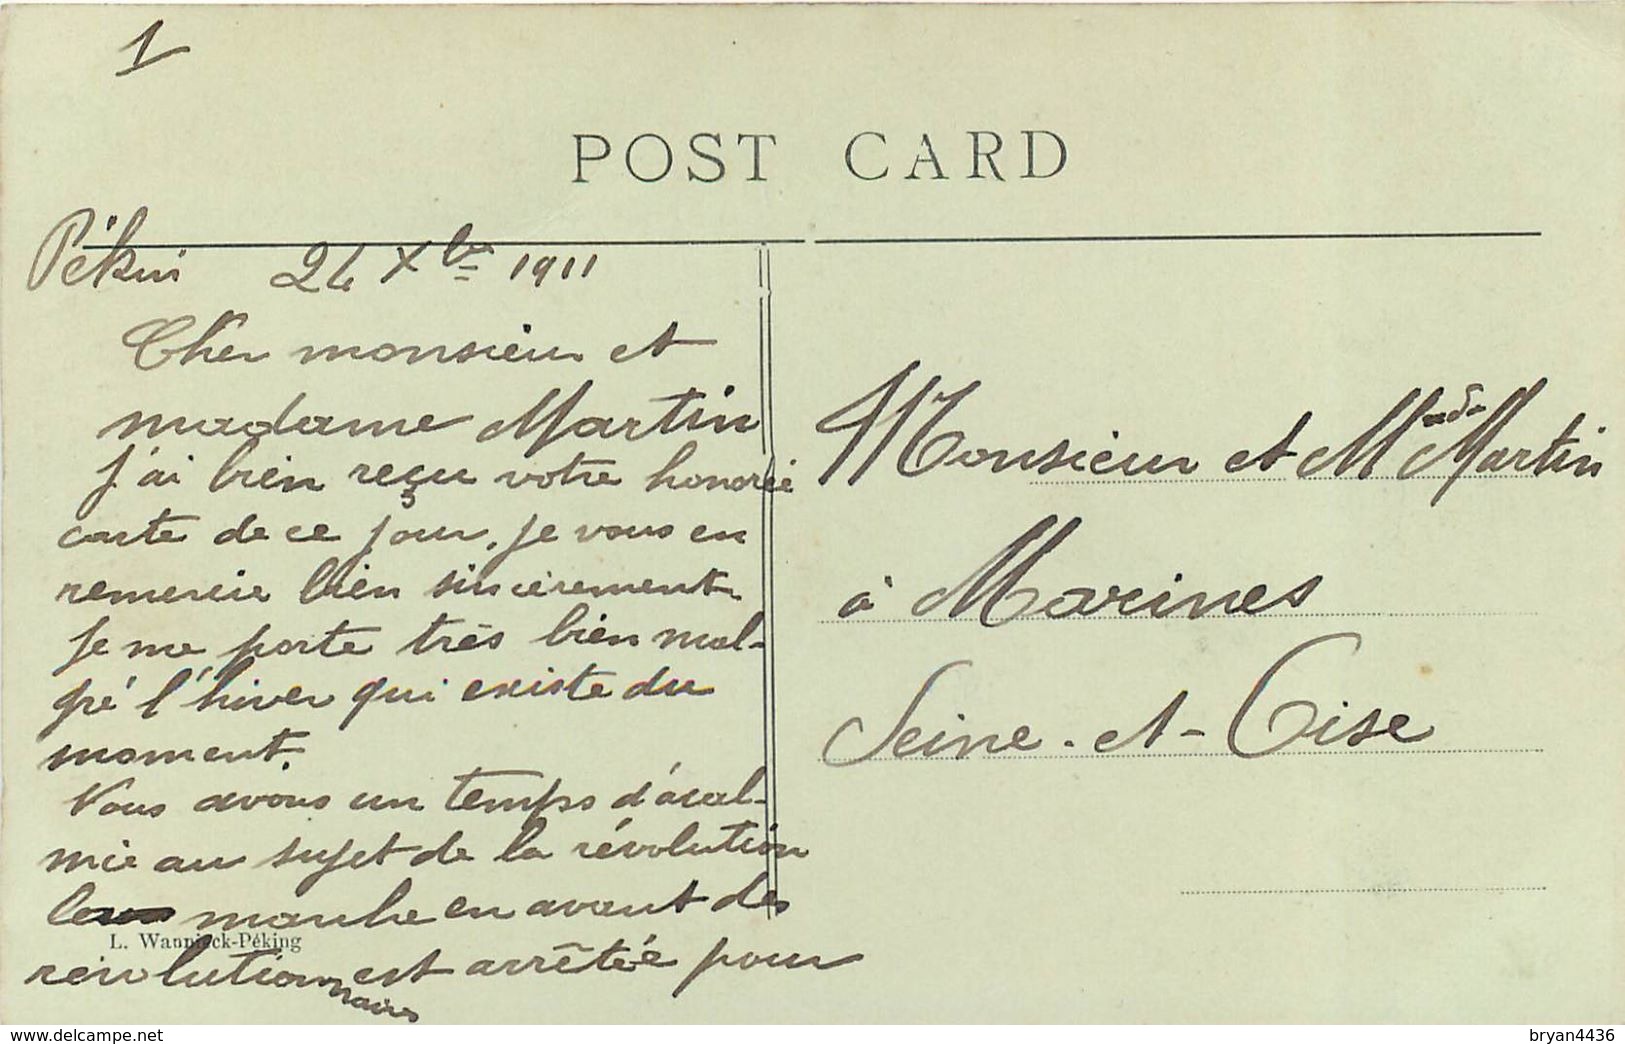 1
POST CARD
Pékin 24 Xbre 1911
Cher monsieur et
madame Martin
J'ai bien reçu votre honorée
carte de ce jour, je vous en
remercie bien sincèrement.
Je me porte très bien mal-
gré l'hiver qui existe du
moment.
Nous avons un temps d'acal-
mie au sujet de la révolution
marche en avant des
révolutionnaires est arrêtée pour
L. Wannieck-Péking
Monsieur et Made Martin
à Marines
Seine-et-Oise
delcampe.net
bryan4436